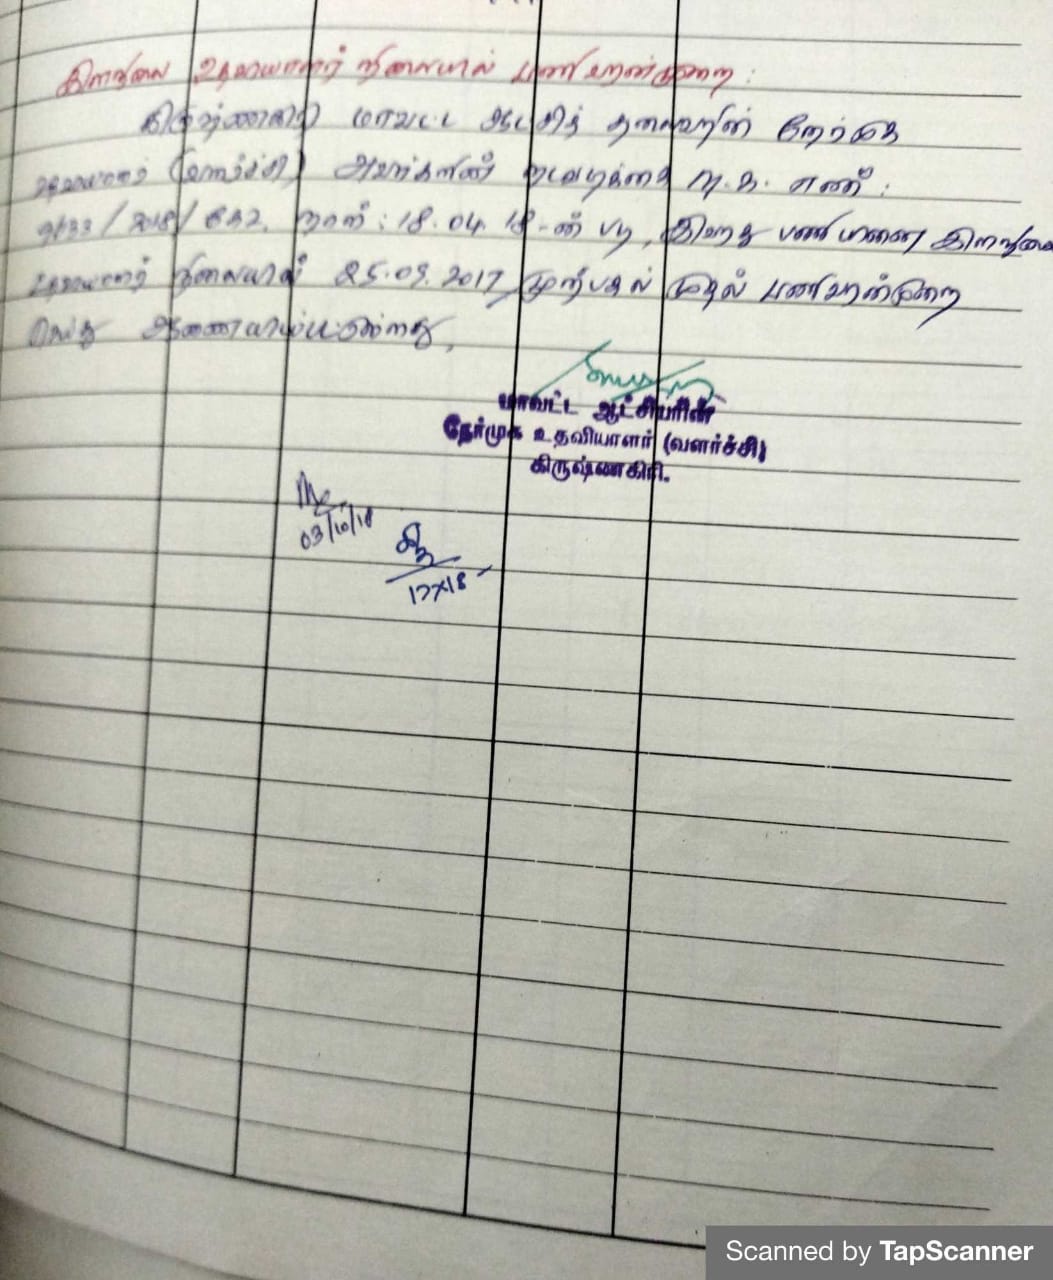 இளநிலை உதவியாளர் நிலையில் பணிவரன்முறை :
கிருஷ்ணகிரி மாவட்ட ஆட்சித் தலைவரின் நேர்முக
உதவியாளர் (வளர்ச்சி) அவர்களின் நடவடிக்கை ந.க. எண் :
/2018/ நாள் : 18.04.18-ன் படி, இவரது பணியினை இளநிலை
உதவியாளர் நிலையில் 25.09.2017 முற்பகல் முதல் பணிவரன்முறை
செய்து ஆணையிடப்பட்டுள்ளது.
மாவட்ட ஆட்சியரின்
நேர்முக உதவியாளர் (வளர்ச்சி)
கிருஷ்ணகிரி.
03/10/18
Scanned by TapScanner